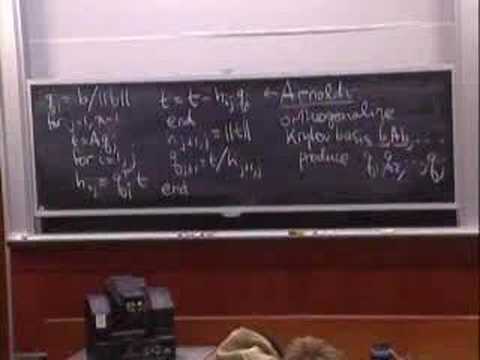 q₁ = b/||b||
for j=1, n-1
t = Aqⱼ
for i=1, j
hᵢⱼ = qᵢᵀ t
t = t - hᵢⱼ qᵢ
end
hⱼ₊₁,ⱼ = ||t||
qⱼ₊₁ = t/hⱼ₊₁,ⱼ
end
← Arnoldi
orthogonalize
Krylov basis b, Ab, ...
produce q₁, q₂, ..., qⱼ